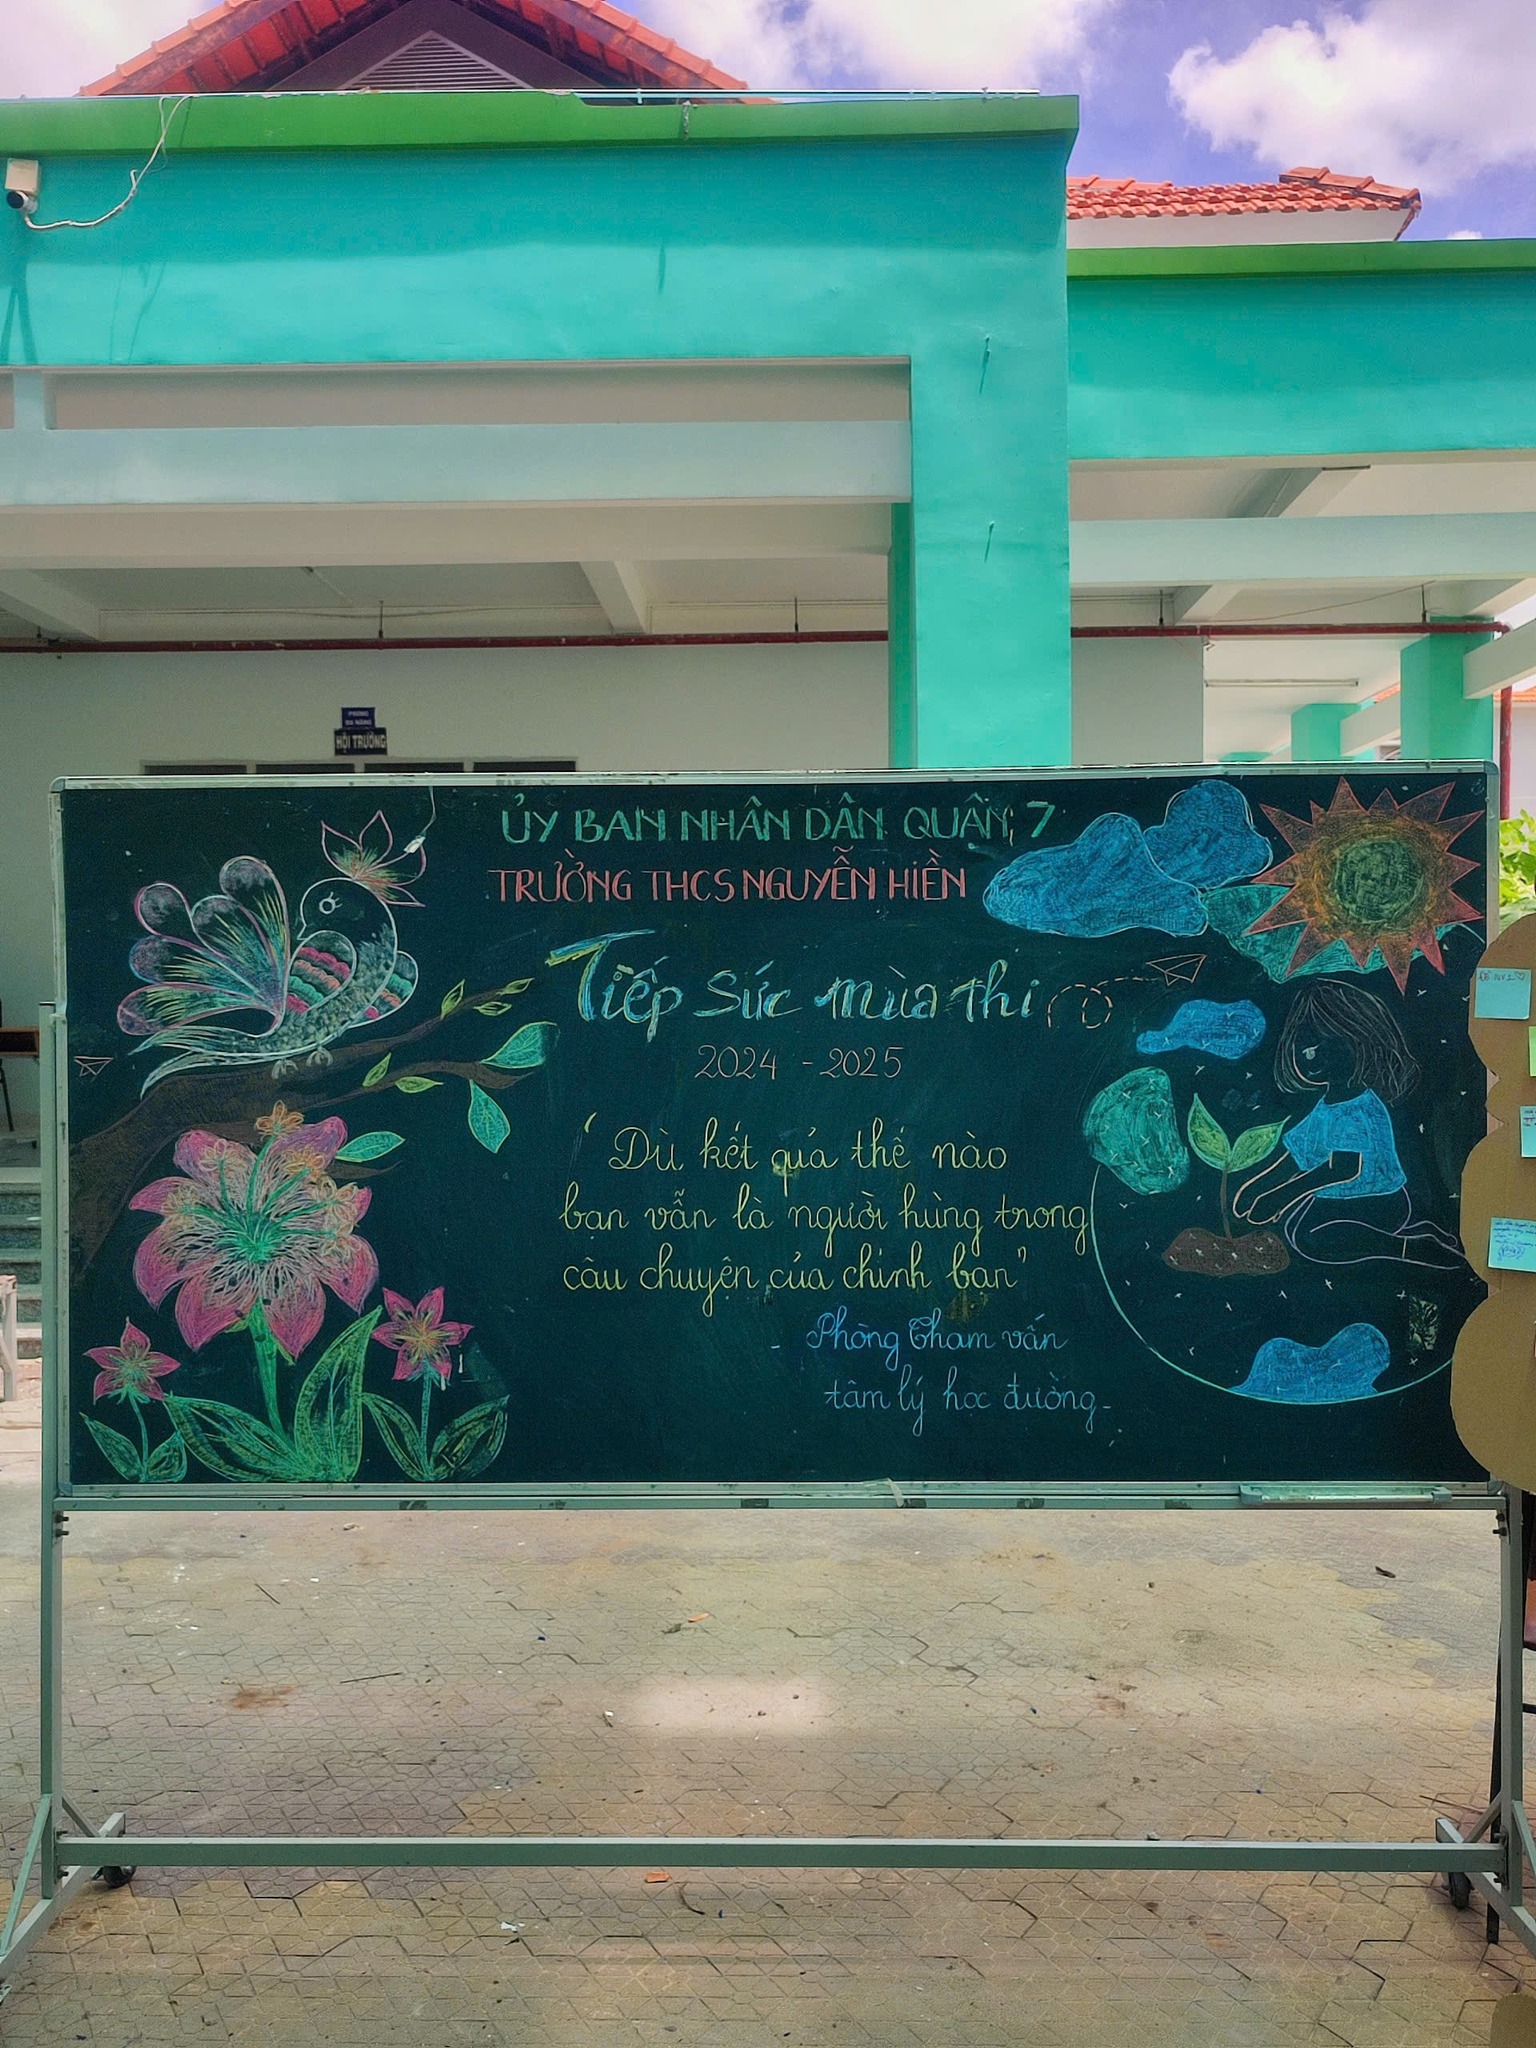 PHÒNG
ĐA NĂNG
HỘI TRƯỜNG
ỦY BAN NHÂN DÂN QUẬN 7
TRƯỜNG THCS NGUYỄN HIỀN
Tiếp sức mùa thi
2024 - 2025
"Dù kết quả thế nào
bạn vẫn là người hùng trong
câu chuyện của chính bạn"
- Phòng Tham vấn
tâm lý học đường -